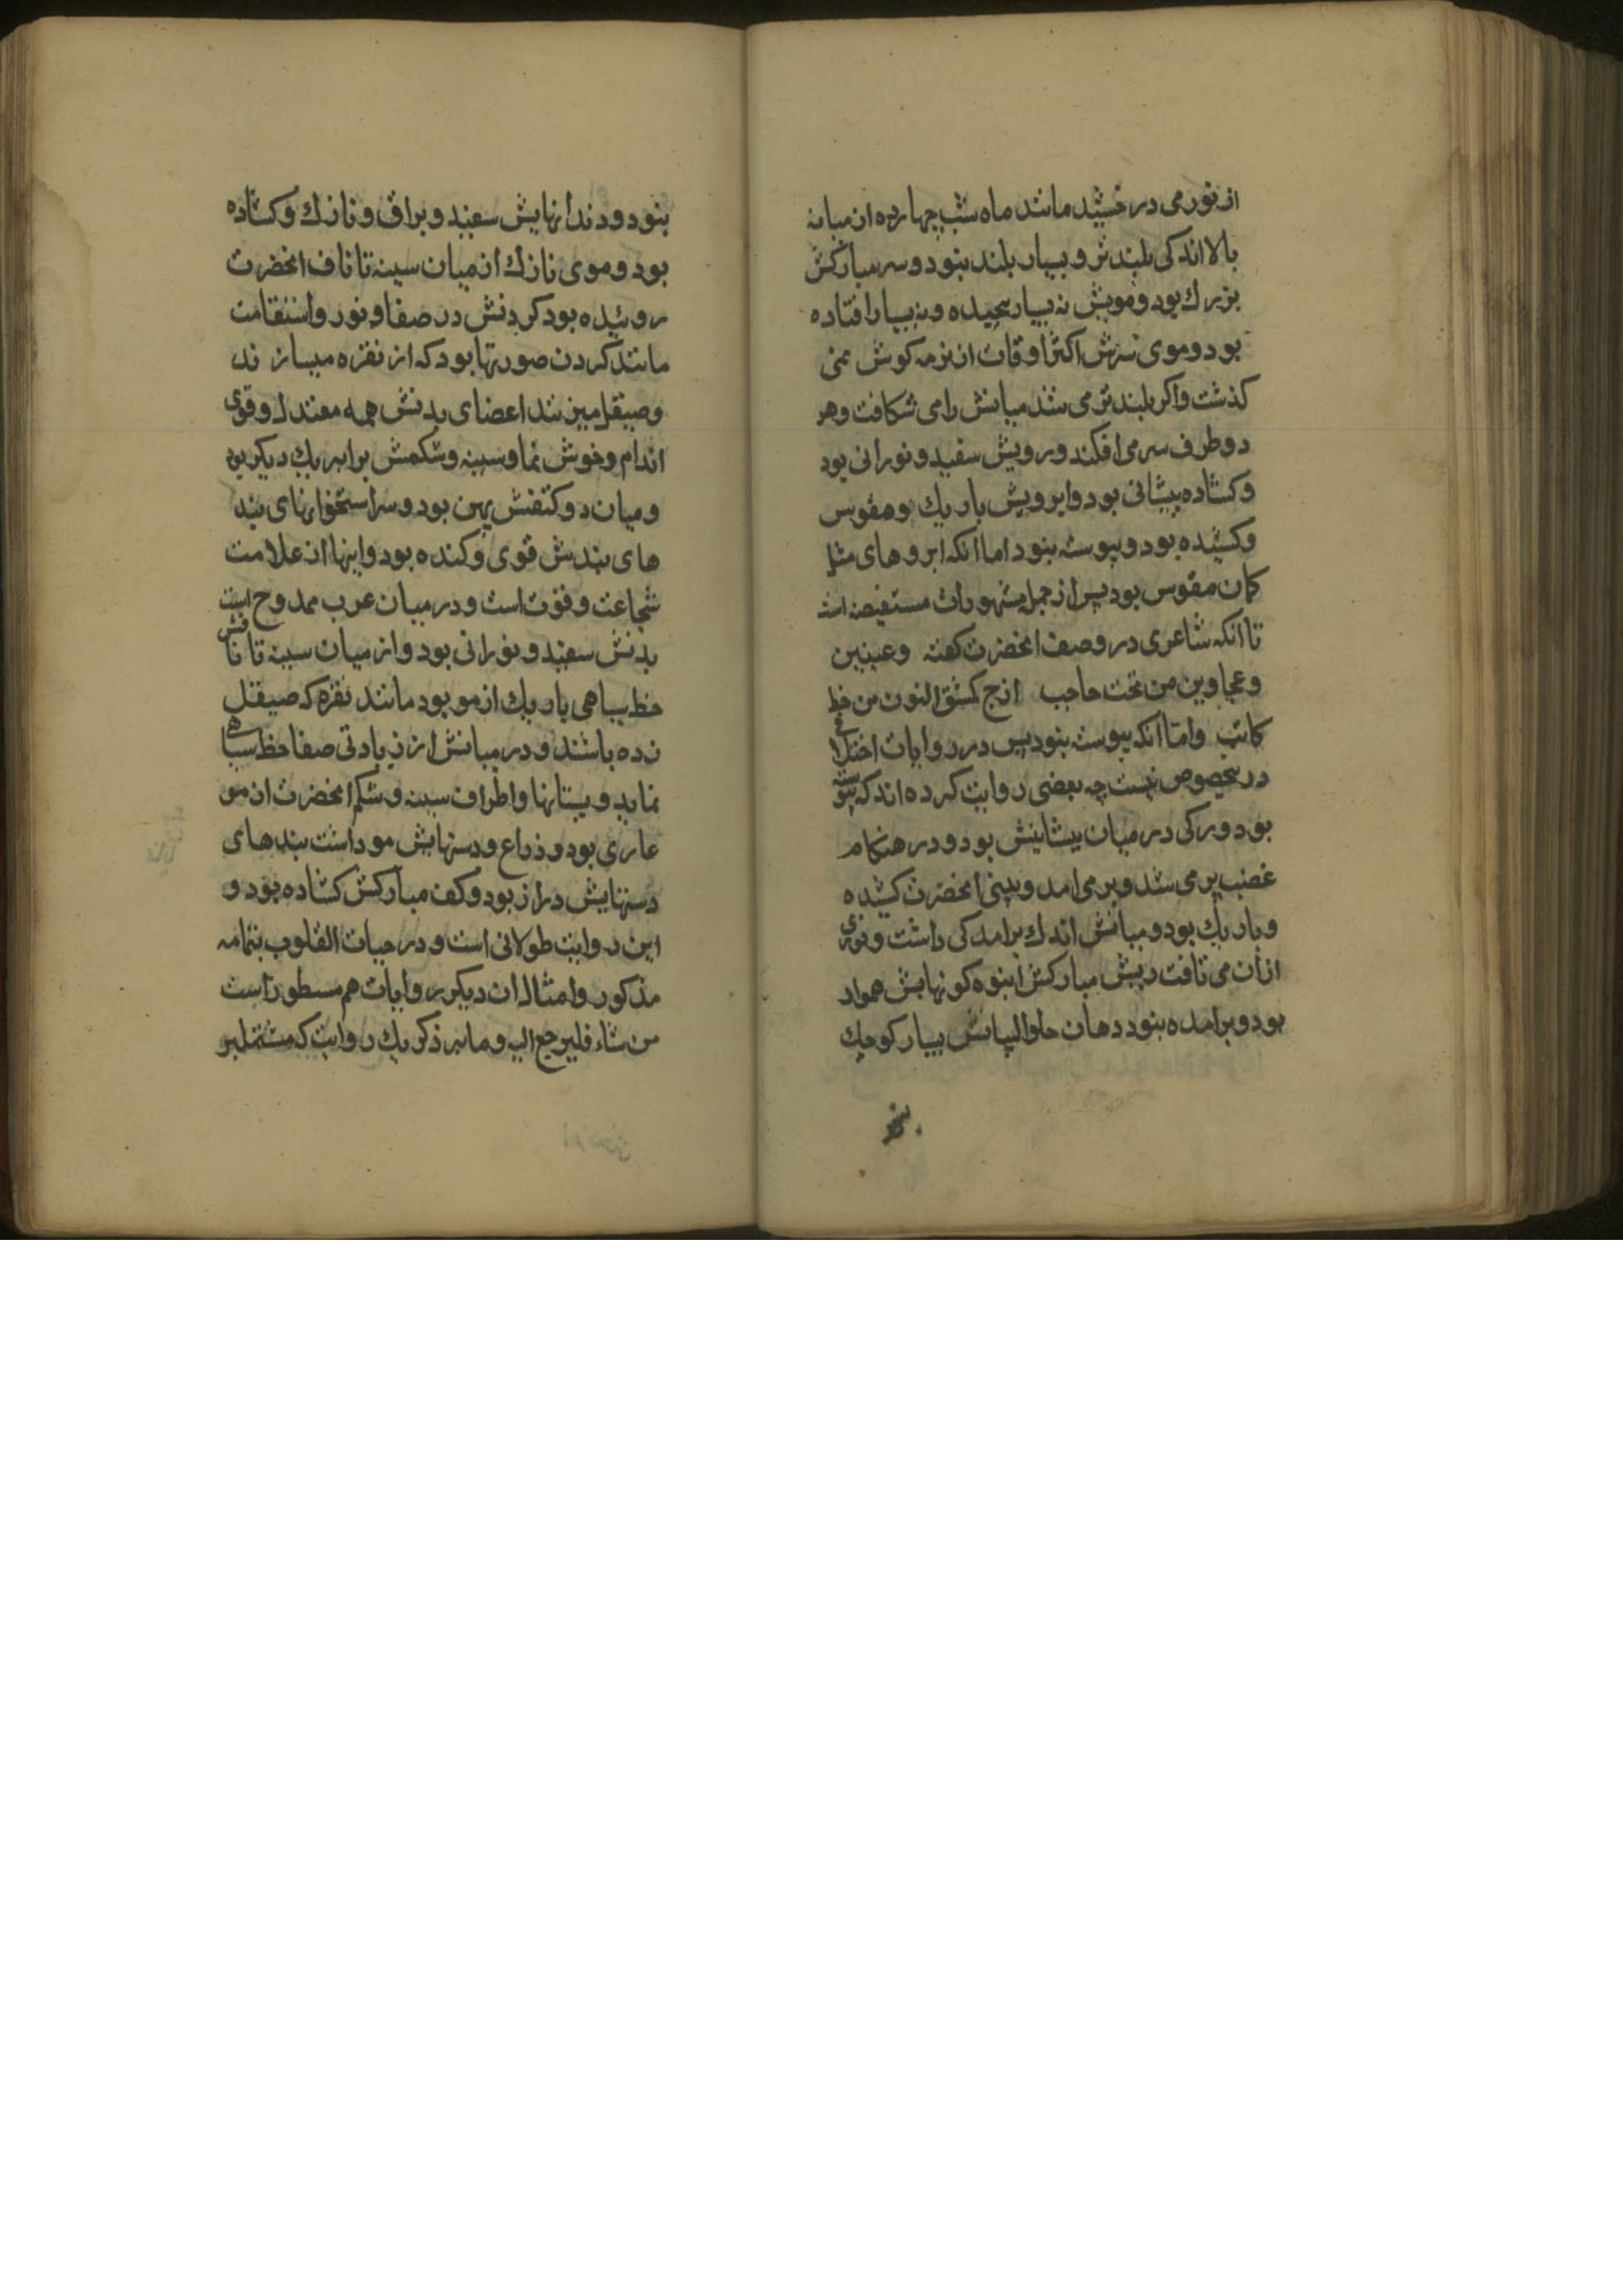 از نور می درخشید مانند ماه شب چهارده از میانه
بالا اندکی بلندتر و بسیار بلند نبود و سر مبارکش
بزرك بود و مویش نه بسیار پیچیده و نه بسیار افتاده
بود و موی سرش اکثر اوقات از نرمه کوش نمی
کذشت واکر بلندتر می شد میانش را می شکافت و هر
دو طرف سر می افکند و رویش سفید و نورانی بود
و کشاده پیشانی بود و ابرویش باریك و مقوس
و کشیده بود و پیوسته نبود اما انکه ابروهای مثل
کمان مقوس بود پس از جمله مشهورات مستفیضه است
تا انکه شاعری در وصف انحضرت کفته وعینین
وعجاوین من تحت حاجب ازج کمشق النون من خط
کاتب واما انکه پیوسته نبود پس در روایات اختلافی
در بخصوص نیست چه بعضی روایت کرده اند که پیوسته
بود و رکی در میان پیشانیش بود و در هنکام
غضب پر می شد و بر می امد و بینی انحضرت کشیده
و باریك بود و میانش اندك برامدکی داشت و نوری
ازان می تافت ریش مبارکش انبوه کونهایش هموار
بود و برامده نبود دهان حلوالبیانش بسیار کوچك
نبود و دندانهایش سفید و براق و نازك و کشاده
بود و موی نازك از میان سینه تا ناف انحضرت
روئیده بود کردنش در صفا و نور و استقامت
مانند کردن صورتها بود که از نقره میسازند
و صیقل میزنند اعضای بدنش همه معتدل و قوی
اندام و خوش نما و سینه و شکمش برابر یك دیکر بود
و میان دو کتفش پهن بود و سر استخوانهای بند
های بندش قوی و کنده بود و اینها از علامت
شجاعت و قوت است و در میان عرب ممدوح است
بدنش سفید و نورانی بود و از میان سینه تا نافش
خط سیاهی باریك از مو بود مانند نقره که صیقل
زده باشند و در میانش از زیادتی صفا خط سیاه
نماید و پستانها و اطراف سینه و شکم انحضرت از مو
عاری بود و ذراع و دستهایش مو داشت بندهای
دستهایش دراز بود و کف مبارکش کشاده بود و
این روایت طولانی است و در حیات القلوب بتمامه
مذکور و امثال ان دیکر روایات هم مسطور است
من شاء فلیرجع الیه و ما بر ذکر یك روایت که مشتمل بر